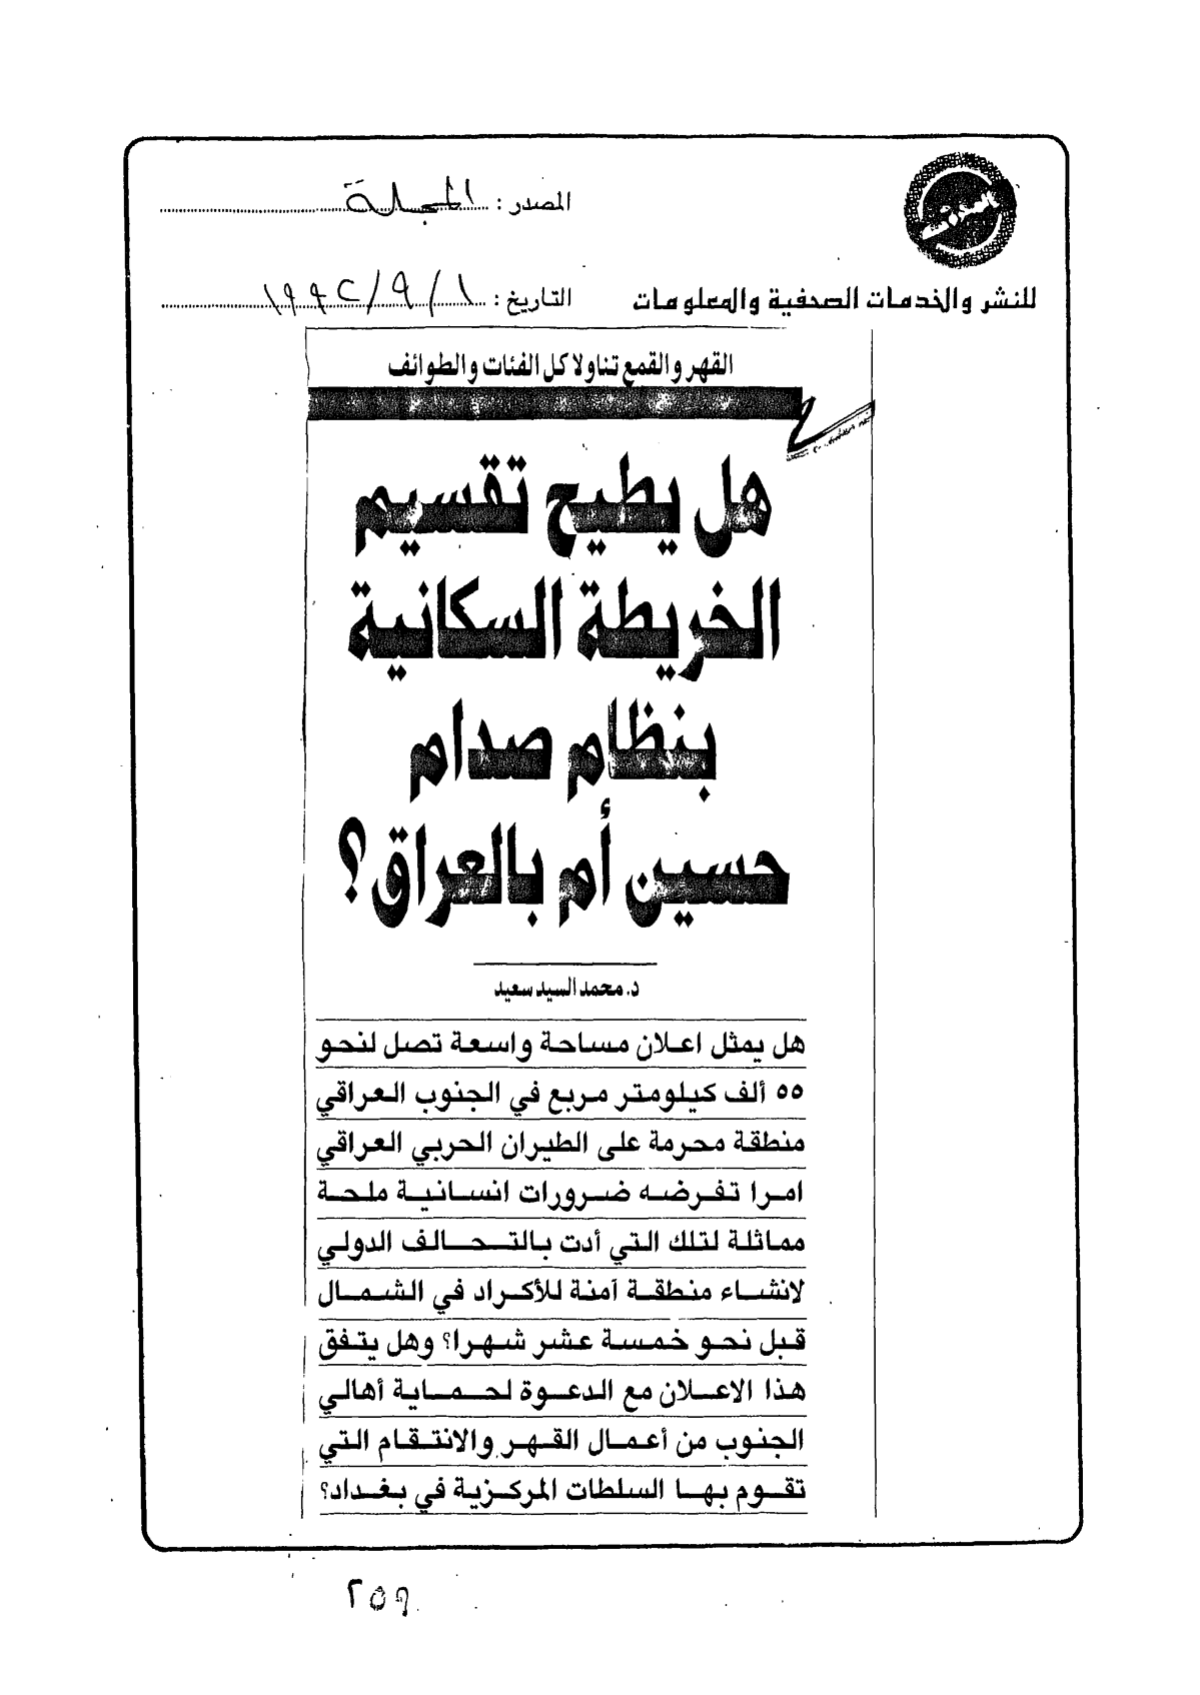 المصدر : المجلة
للنشر والخدمات الصحفية والمعلومات
التاريخ : ١ / ٩ / ١٩٩٢
القهر والقمع تناولا كل الفئات والطوائف
هل يطيح تقسيم
الخريطة السكانية
بنظام صدام
حسين أم بالعراق؟
د. محمد السيد سعيد
هل يمثل اعلان مساحة واسعة تصل لنحو
٥٥ ألف كيلومتر مربع في الجنوب العراقي
منطقة محرمة على الطيران الحربي العراقي
امرا تفرضه ضرورات انسانية ملحة
مماثلة لتلك التي أدت بالتحالف الدولي
لانشاء منطقة آمنة للأكراد في الشمال
قبل نحو خمسة عشر شهرا؟ وهل يتفق
هذا الاعلان مع الدعوة لحماية أهالي
الجنوب من أعمال القهر والانتقام التي
تقوم بها السلطات المركزية في بغداد؟
٢٥٩